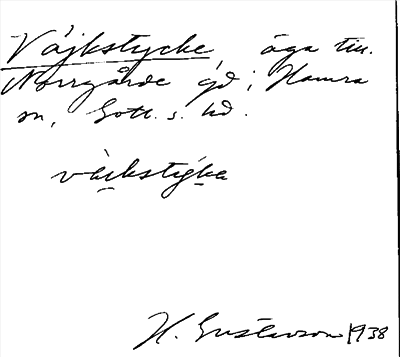 Väjkstycke, äga till.
Norrgårde gd i Hamra
sn, Gotl. s. hd.
väikstyka
H. Gustavson 1938